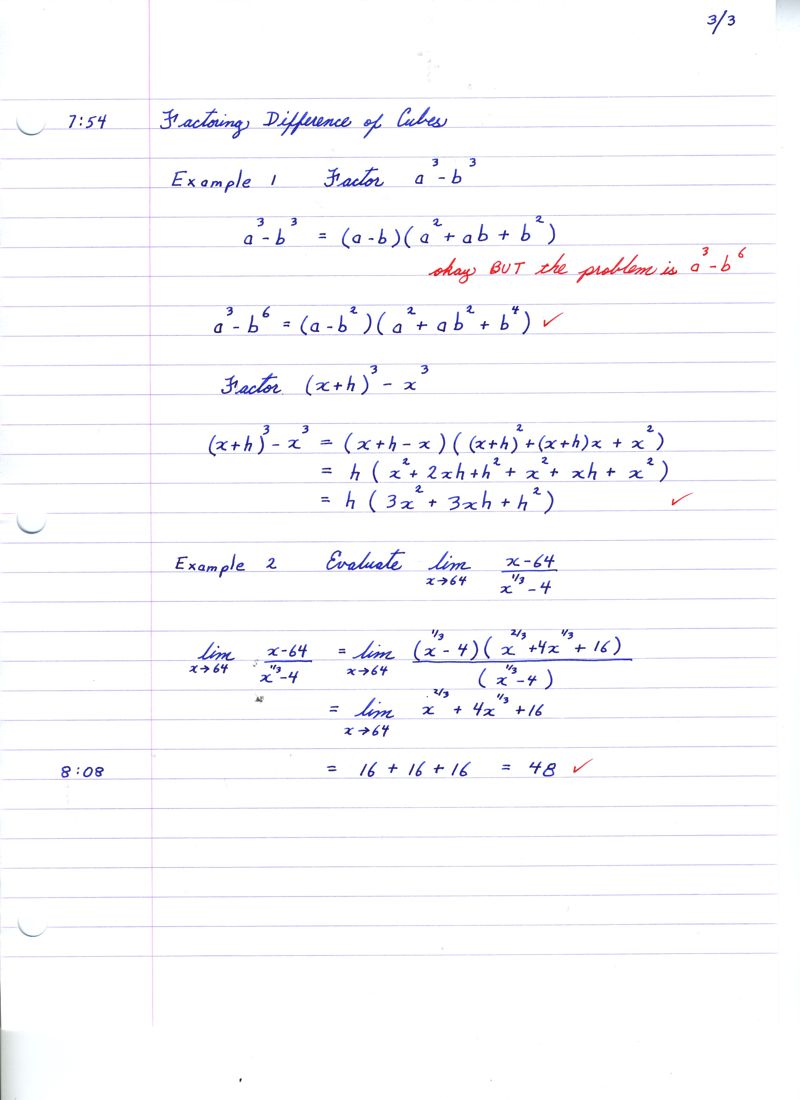 3/3
7:54 Factoring Difference of Cubes
Example 1 Factor a³-b³
a³-b³ = (a-b)(a²+ab+b²)
okay BUT the problem is a³-b⁶
a³-b⁶ = (a-b²)(a²+ab²+b⁴) ✓
Factor (x+h)³ - x³
(x+h)³ - x³ = (x+h-x)((x+h)²+(x+h)x + x²)
= h(x²+2xh+h²+x²+xh+x²)
= h(3x²+3xh+h²) ✓
Example 2 Evaluate lim x→64 (x-64)/(x^1/3 - 4)
lim x→64 (x-64)/(x^1/3-4) = lim x→64 (x^1/3-4)(x^2/3+4x^1/3+16)/(x^1/3-4)
= lim x→64 x^2/3 + 4x^1/3 +16
8:08 = 16+16+16 = 48 ✓